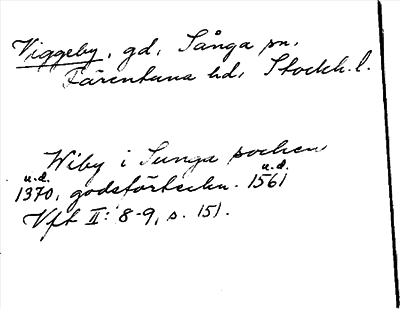 Viggeby, gd, Sånga sn,
Färentuna hd, Stockh. l.
Wiby i Sunga sochen
u.d. u.d.
1370, godsförteckn. 1561
Vft II: 8-9, s. 151.